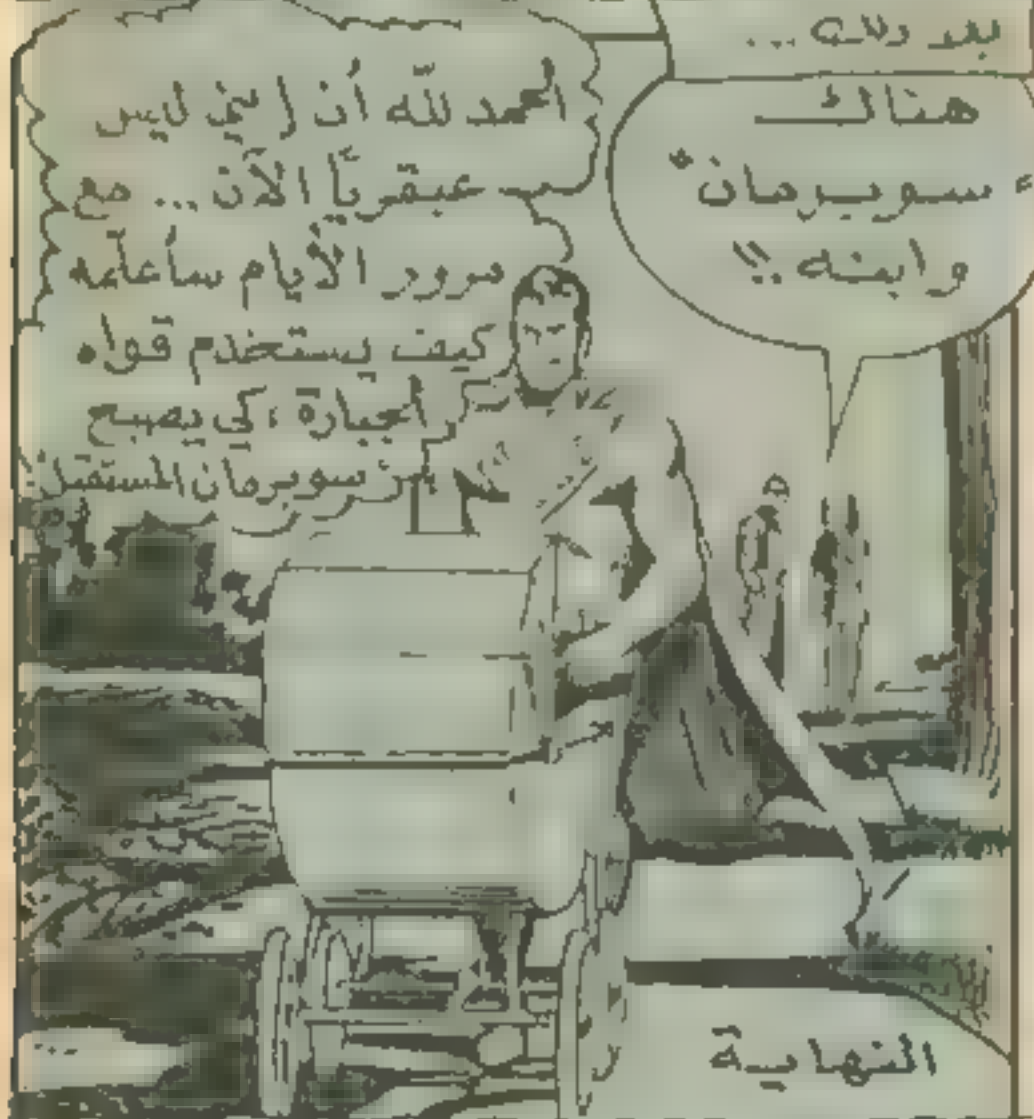 بعد ذلك ...
هناك
"سوبرمان"
وابنه !!
الحمد لله أن إبني ليس
عبقريًا الآن ... مع
مرور الأيام سأعلّمه
كيف يستخدم قواه
الجبارة ، كي يصبح
سوبرمان المستقبل
النهاية